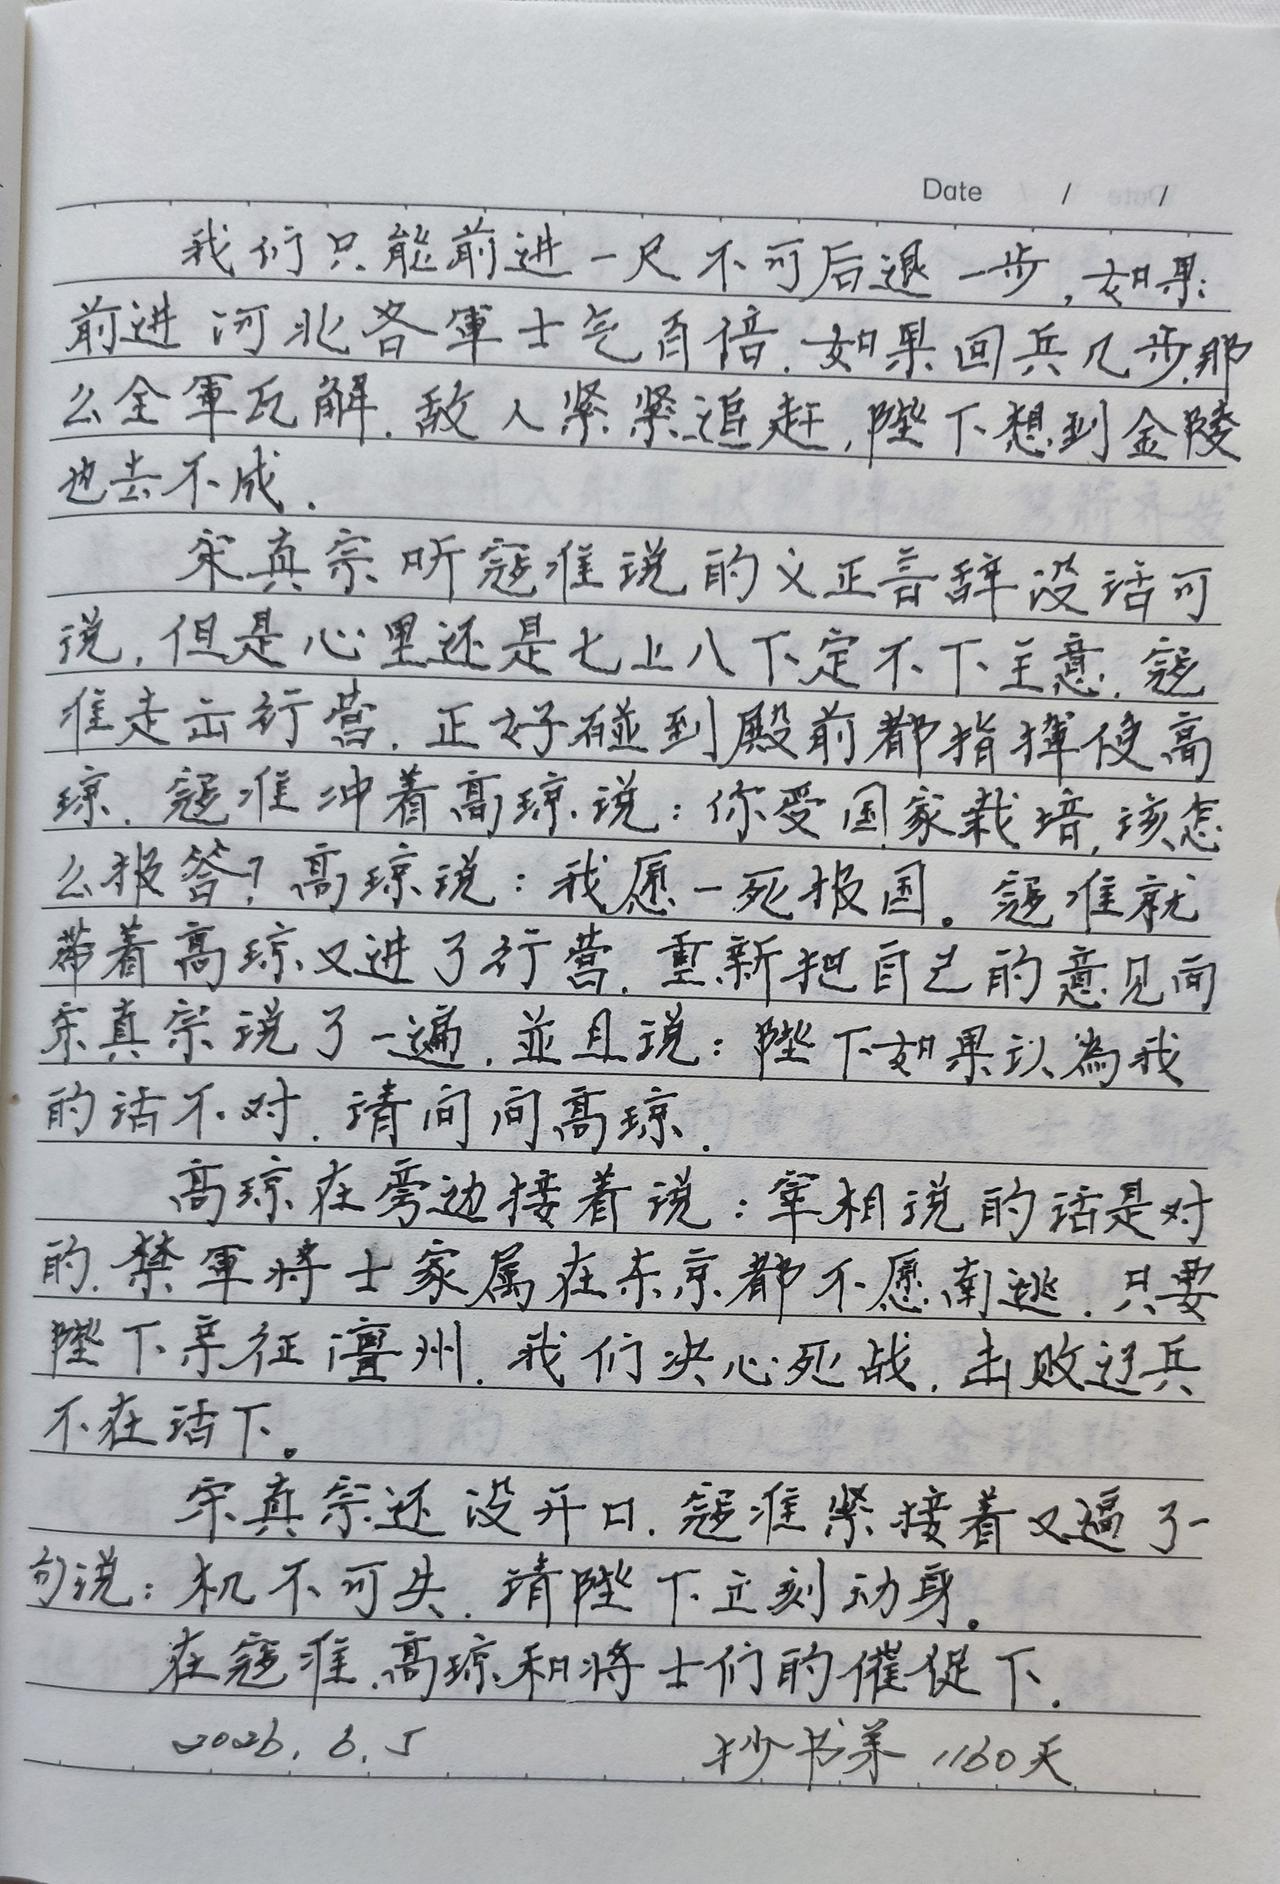 Date / /
我们只能前进一尺不可后退一步,如果
前进河北各軍士气百倍.如果回兵几步,那
么全軍瓦解.敌人紧紧追赶,陛下想到金陵
也去不成.
宋真宗听寇准说的义正言辞没话可
说,但是心里还是七上八下定不下主意.寇
准走出行营.正好碰到殿前都指挥使高
琼.寇准冲着高琼说:你受国家栽培,该怎
么报答?高琼说:我愿一死报国。寇准就
带着高琼又进了行营.重新把自己的意见向
宋真宗说了一遍.並且说:陛下如果以為我
的话不对.请问问高琼.
高琼在旁边接着说:宰相说的话是对
的.禁軍将士家属在东京都不愿南逃.只要
陛下亲征澶州.我们决心死战.击败辽兵
不在话下。
宋真宗还没开口.寇准紧接着又逼了一
句说:机不可失.请陛下立刻动身。
在寇准.高琼和将士们的催促下.
2026.6.5 抄书第1160天